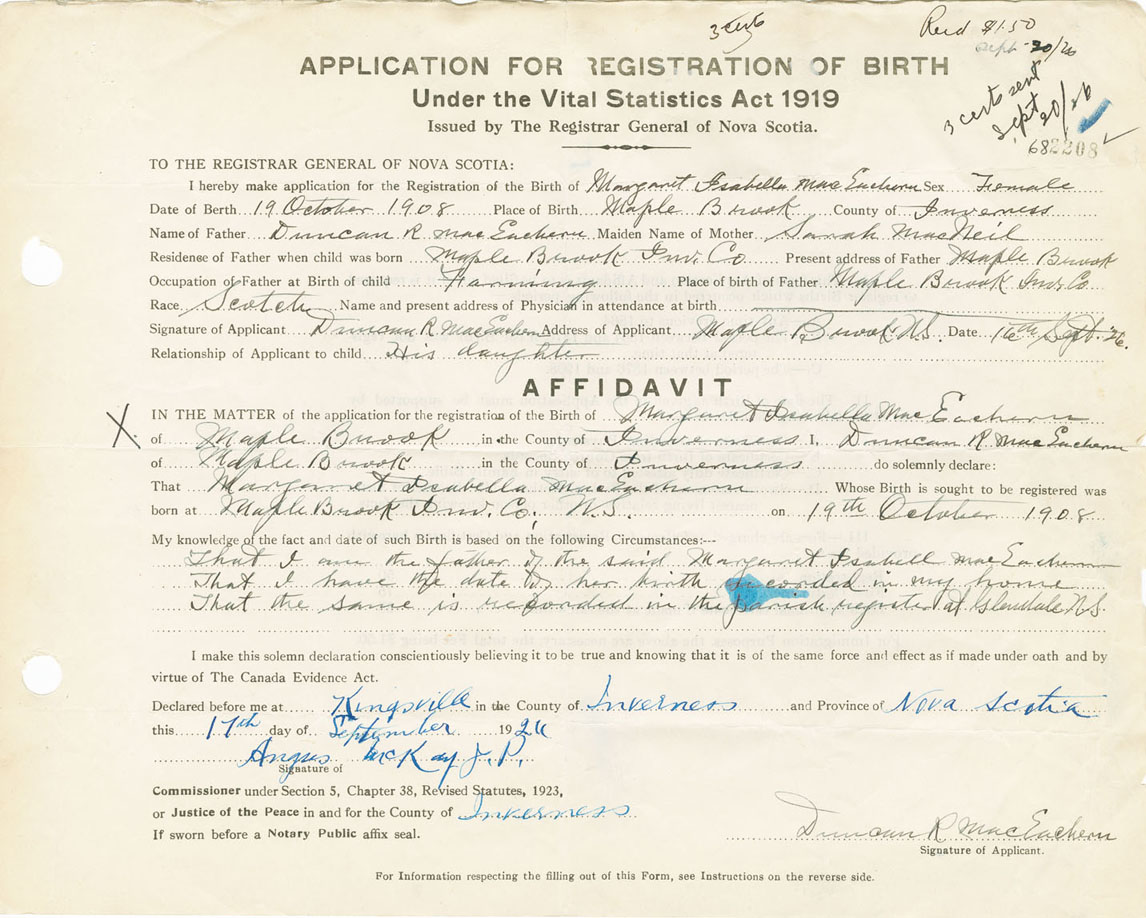 3 certs
Recd $1.50
Sept 20/26
APPLICATION FOR REGISTRATION OF BIRTH
Under the Vital Statistics Act 1919
Issued by The Registrar General of Nova Scotia.
3 certs sent
Sept 20/26
682208
TO THE REGISTRAR GENERAL OF NOVA SCOTIA:
I hereby make application for the Registration of the Birth of Margaret Isabella MacEachern Sex Female
Date of Berth 19 October 1908 Place of Birth Maple Brook County of Inverness
Name of Father Duncan R MacEachern Maiden Name of Mother Sarah MacNeil
Residense of Father when child was born Maple Brook Inv. Co Present address of Father Maple Brook
Occupation of Father at Birth of child Farming Place of birth of Father Maple Brook Inv. Co.
Race Scotch Name and present address of Physician in attendance at birth
Signature of Applicant Duncan R MacEachern Address of Applicant Maple Brook N.S. Date 16th Sept. 26.
Relationship of Applicant to child His daughter
AFFIDAVIT
X IN THE MATTER of the application for the registration of the Birth of Margaret Isabella MacEachern
of Maple Brook in the County of Inverness I, Duncan R MacEachern
of Maple Brook in the County of Inverness do solemnly declare:
That Margaret Isabella MacEachern Whose Birth is sought to be registered was
born at Maple Brook Inv. Co, N.S. on 19th October 1908
My knowledge of the fact and date of such Birth is based on the following Circumstances:---
That I am the father of the said Margaret Isabell MacEachern
That I have the date of her birth recorded in my home
That the same is recorded in the parish register at Glendale N.S.
I make this solemn declaration conscientiously believing it to be true and knowing that it is of the same force and effect as if made under oath and by
virtue of The Canada Evidence Act.
Declared before me at Kingsville in the County of Inverness and Province of Nova Scotia
this 17th day of September 1926
Angus McKay J.P.
Signature of
Commissioner under Section 5, Chapter 38, Revised Statutes, 1923,
or Justice of the Peace in and for the County of Inverness
If sworn before a Notary Public affix seal.
Duncan R MacEachern
Signature of Applicant.
For Information respecting the filling out of this Form, see Instructions on the reverse side.